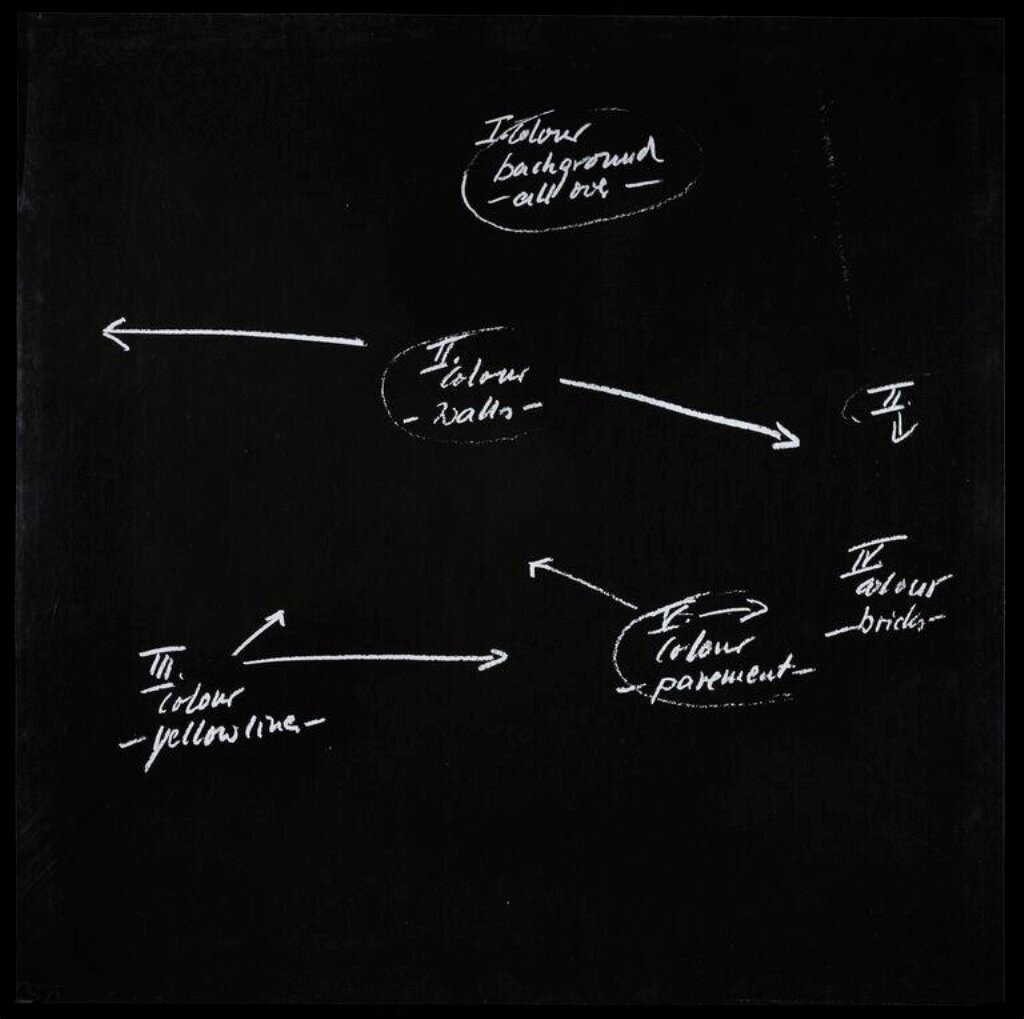 I. Colour
background
- all over -
II.
Colour
- walls -
II.
IV
colour
- bricks -
V.
Colour
- pavement -
III.
Colour
- yellow line -